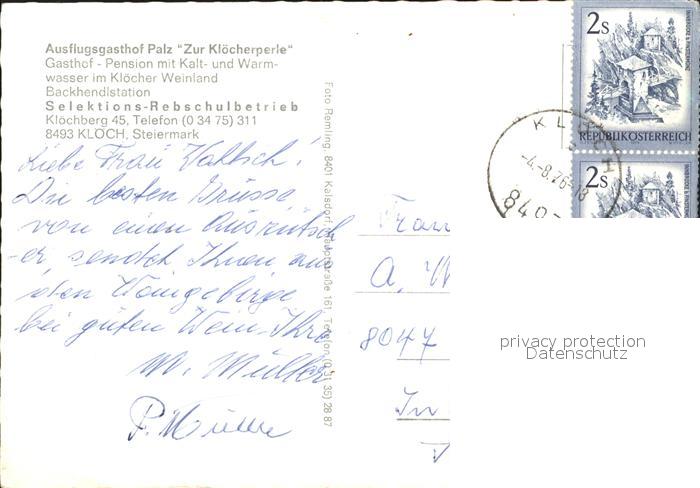 Ausflugsgasthof Palz "Zur Klöcherperle"
Gasthof - Pension mit Kalt- und Warm-
wasser im Klöcher Weinland
Backhendlstation
Selektions-Rebschulbetrieb
Klöchberg 45, Telefon (0 34 75) 311
8493 KLÖCH, Steiermark
Liebe Frau
Die besten Grüsse
von einen Ausrutsch
er sendet Ihnen aus
den Weingebirge
bei guten Wein Ihre
M. Müller
P. Müller
Foto Remling, 8401 Kalsdorf, Hauptstraße 161, Telefon (0 31 35) 28 87
2s
REPUBLIK ÖSTERREICH
2s
-4.-8.76-18
840
Frau
A. W
8047
privacy protection
Datenschutz